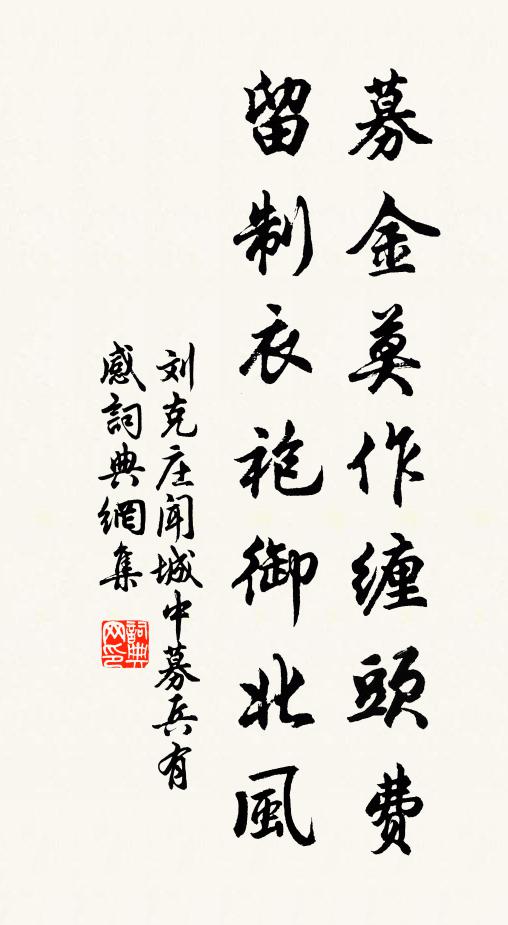 募金莫作缠頭費
留制衣袍御北風
刘克庄闻城中募兵有
感詞典網集
詞典网印